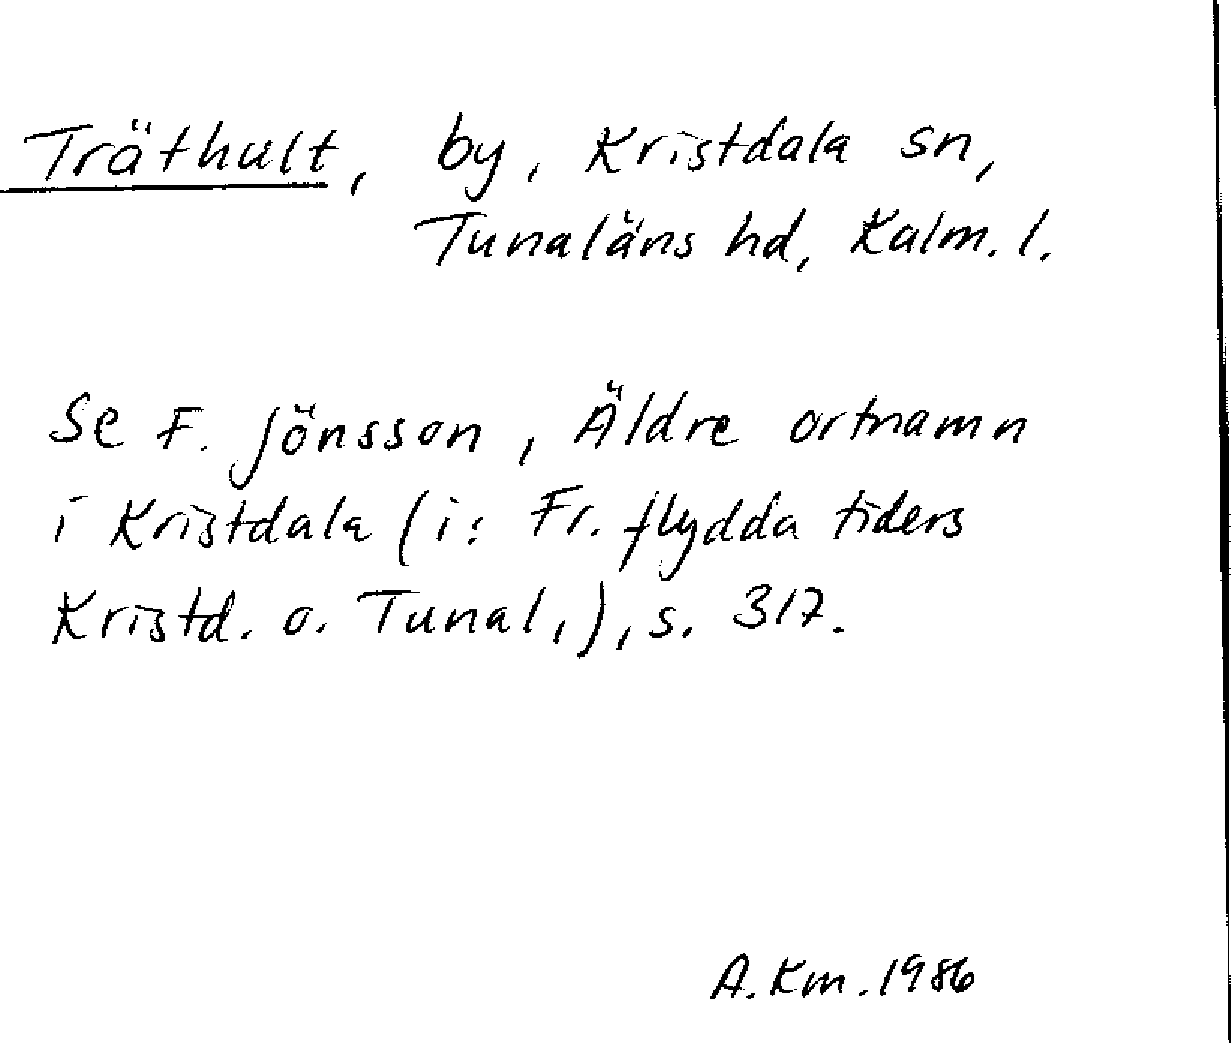 Träthult, by, Kristdala sn,
Tunaläns hd, Kalm. l.
Se F. Jönsson, Äldre ortnamn
i Kristdala (i: Fr. flydda tiders
Kristd. o. Tunal,), s. 317.
A. Km. 1986